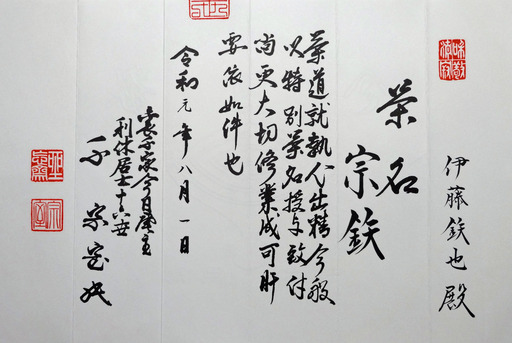 伊藤鉄也殿
茶名
宗鉄
茶道就執心仕精今般
以特別茶名授与致付
尚更大切修業成可肝
要依如件也
令和元年八月一日
裏千家今日庵主
利休居士十六世
千宗室